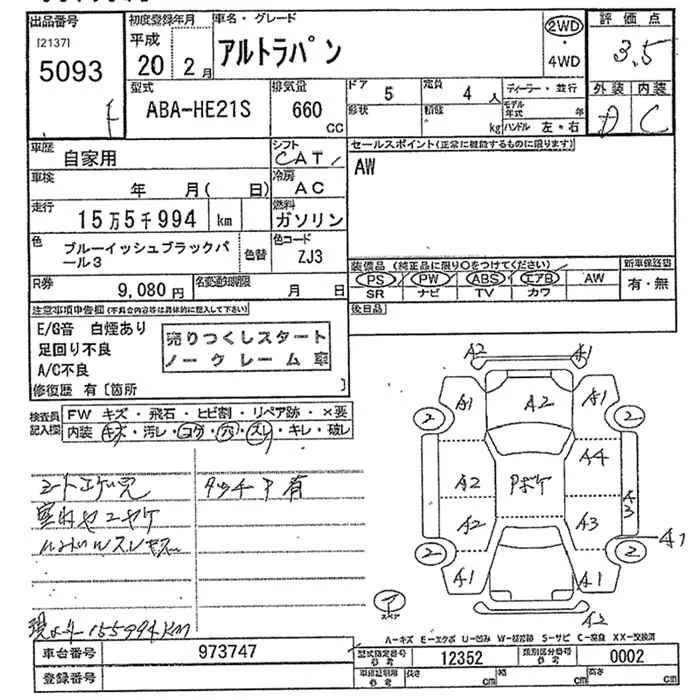 出品番号
[2137]
5093
F
初度登録年月
平成
20 2月
車名・グレード
アルトラパン
2WD
・
4WD
評価点
3.5
外装 内装
D C
型式
ABA-HE21S
排気量
660
CC
ドア 5
形状
定員 4 人
積載 kg
ディーラー・並行
モデル年式 年
ハンドル 左・右
車歴
自家用
シフト
CAT
車検
年 月( 日)
冷房
AC
走行
15万5千994 km
燃料
ガソリン
色
ブルーイッシュブラックパール3
色替
色コード
ZJ3
R券
9,080円
名変通知期限
月 日
セールスポイント(正常に機能するものに限ります)
AW
装備品 (純正品に限り○をつけてください)
PS PW ABS エアB AW
SR ナビ TV カワ
新車保証書
有・無
後日品
注意事項申告欄(不具合内容等は具体的に記入して下さい)
E/G音 白煙あり
足回り不良
A/C不良
売りつくしスタート
ノークレーム車
修復歴 有〔箇所 〕
検査員記入欄
FW キズ・飛石・ヒビ割・リペア跡・×要
内装 キズ・汚レ・コゲ・穴・スレ・キレ・破レ
シートコゲ穴
タッチP有
室内ヤニヤケ
ハンドルスレキズ
現メーター155994KM
A2 A1
A1 A2 A1
2 2
A4
A2 Pボケ
A3
A2 A3
2 2
A1
A1 A1
A2
スペア
A-キズ E-エクボ U-凹み W-補修跡 S-サビ C-腐食 XX-交換済
車台番号 973747
登録番号
型式指定番号 参考 12352
類別区分番号 参考 0002
車庫証明用 参考
長さ cm
幅 cm
高さ cm